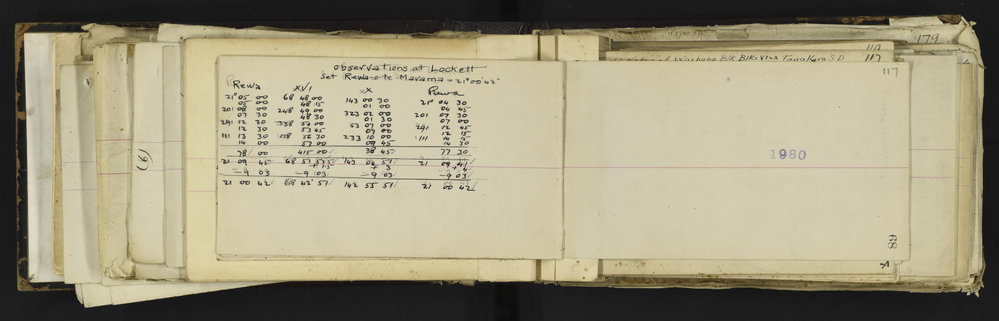 observations at Lockett
Set Rewa-o te Marama = 21°00'42"
Rewa XVI X Rewa
21° 05 00 68 48 00 143 00 30 21° 04 30
05 00 48 15 01 00 04 45
201 08 00 248 49 00 323 02 00 201 07 30
07 30 48 30 01 30 07 00
291 12 30 338 54 00 53 07 00 291 12 45
12 30 53 45 07 00 12 15
111 13 30 158 56 30 233 10 00 111 14 15
14 00 57 00 09 45 14 30
78 00 415 00 38 45 77 30
21 09 45 68 51 143 04 51 21 09 41
+ 3 + 4
-9 03 -9 03 -9 03 -9 03
21 00 42 68 42 51 142 55 51 21 00 42
(9)
179
117
Blk Blks Tauakara S.D. 117
117
1980
68